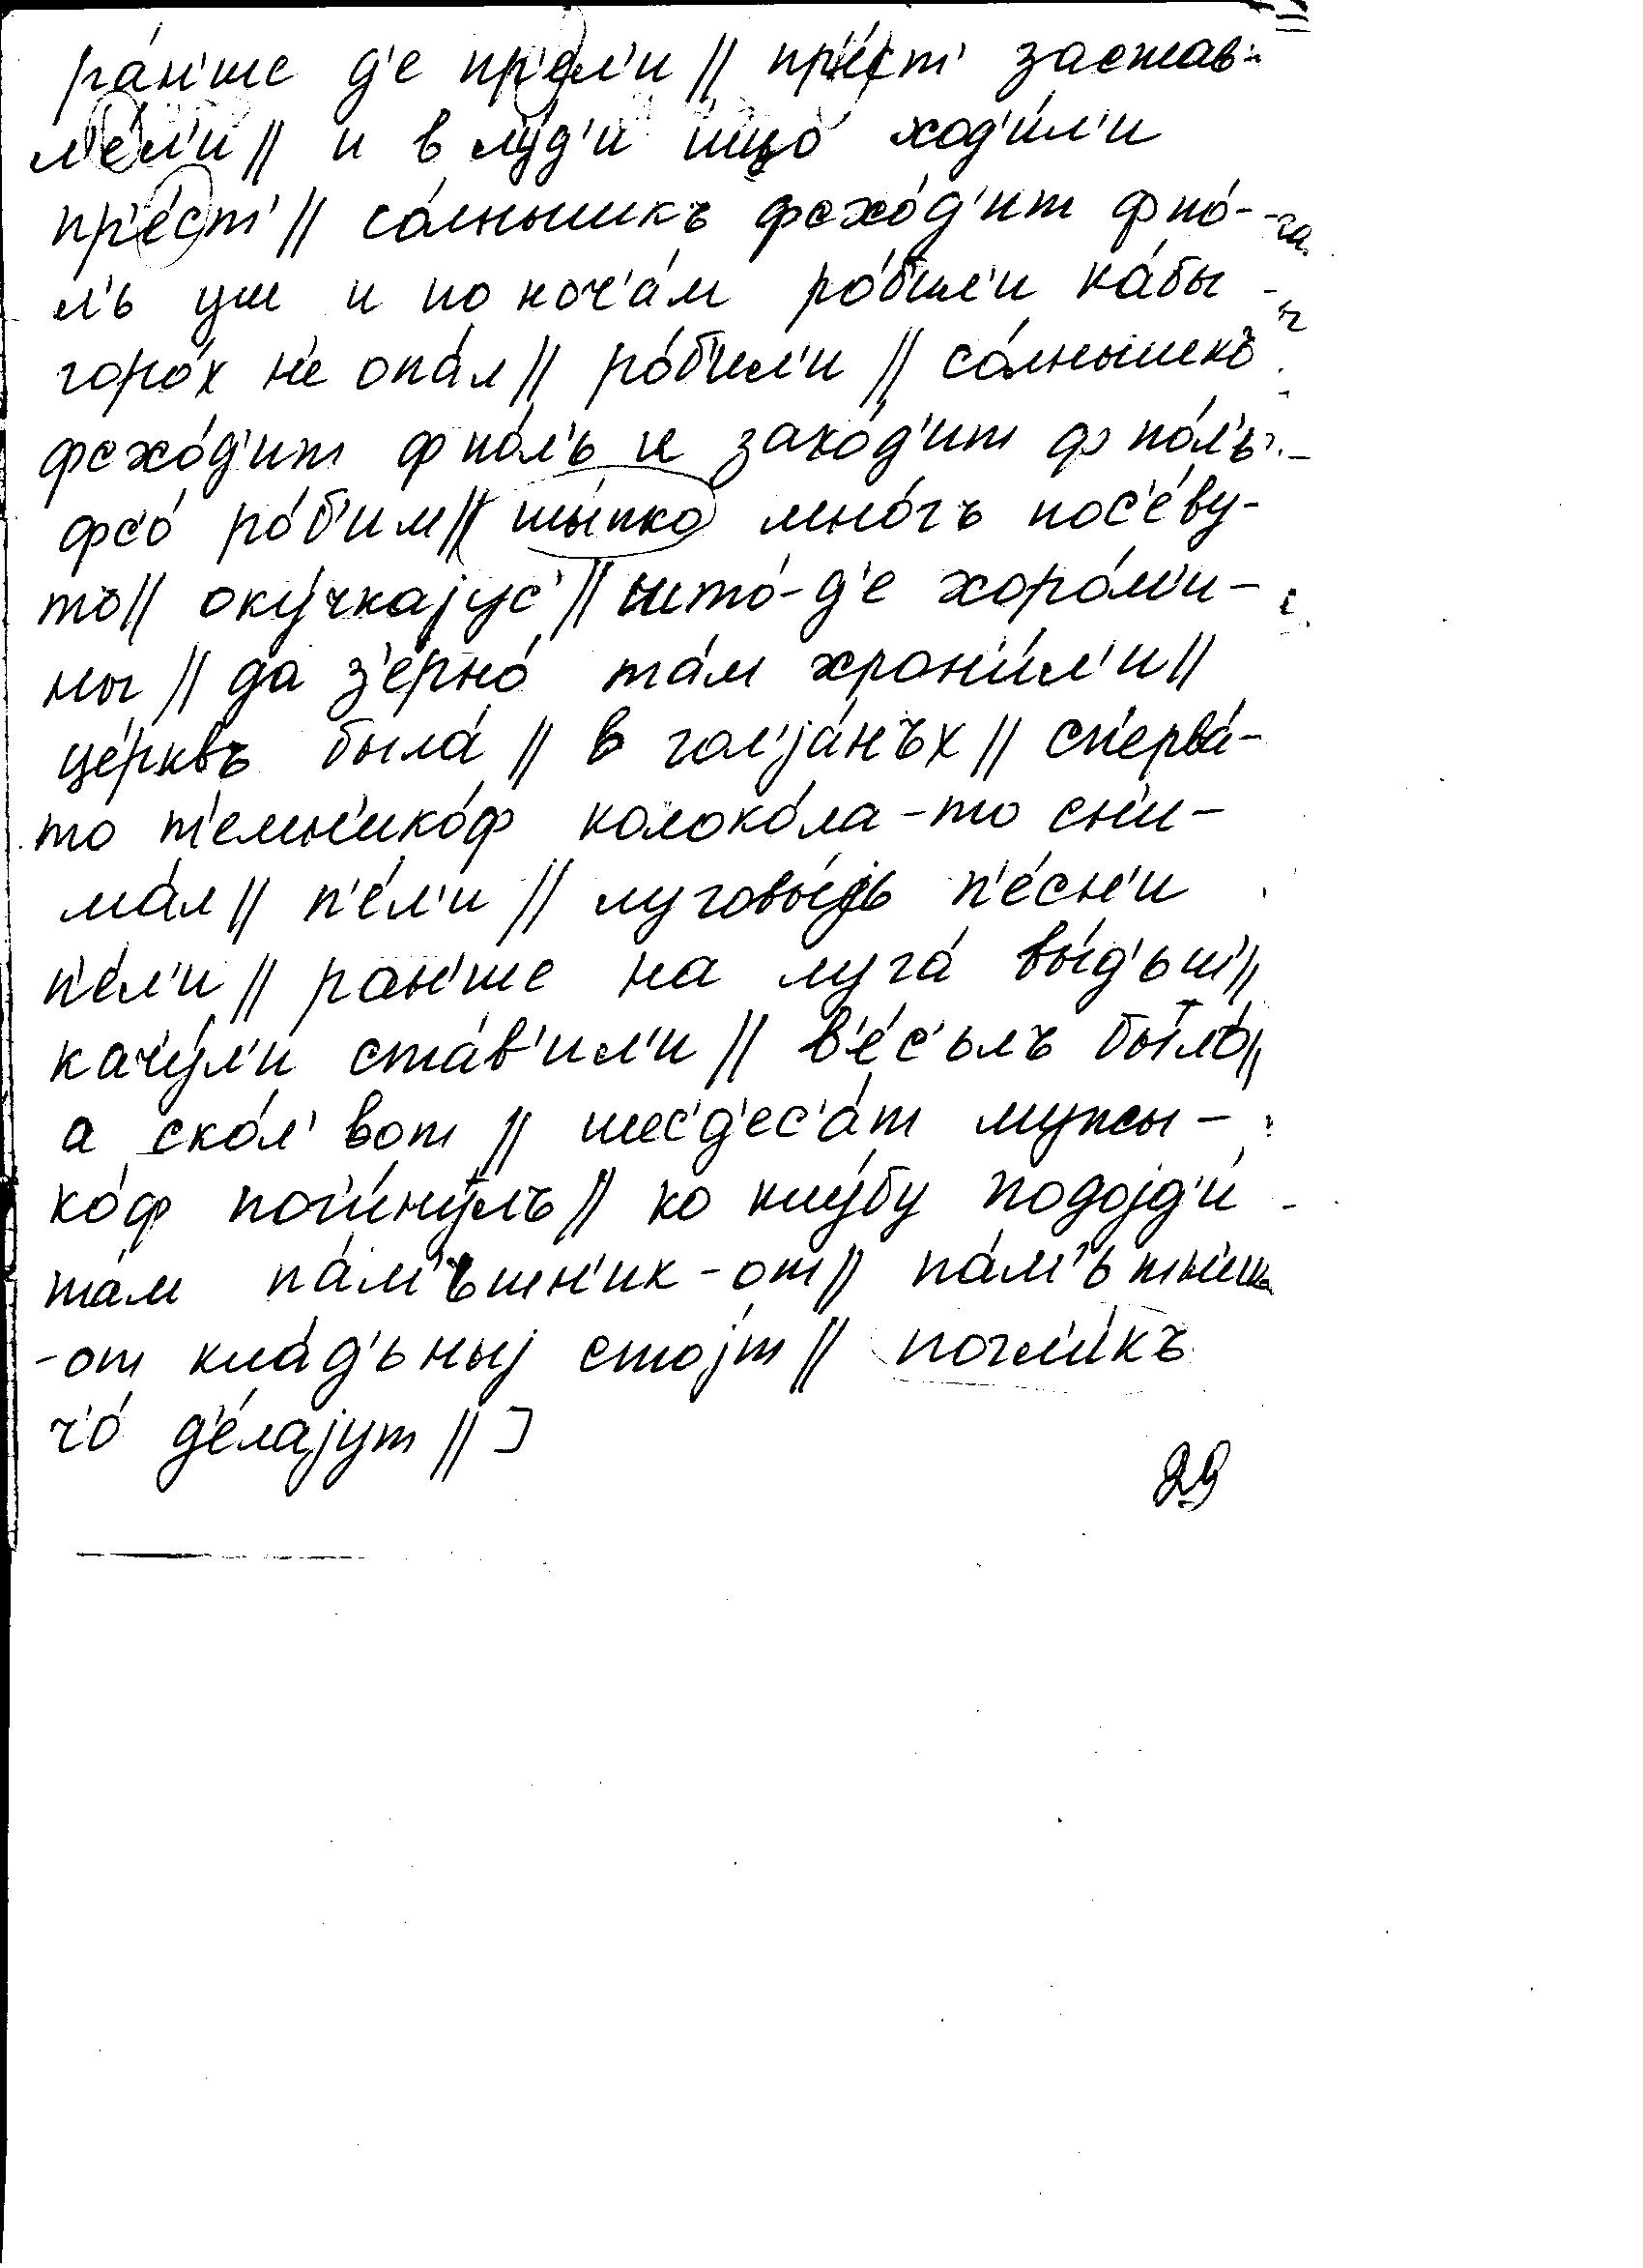 ра́н'ше д'е пр'ел'и // пр'е́ст' застав-
л'е́л'и // и в л'у́д'и ишо́ ход'и́л'и
пр'е́ст' // со́лнышкъ фсхо́д'ит ф по́-
л'ь уш и по ноч'а́м ро́б'ил'и ка́бы
горо́х н'е опа́л // ро́б'ил'и // со́лнышкъ
фсхо́д'ит ф по́л'ь и захо́д'ит ф по́л'ь
фс'о́ ро́б'им // шы́пко мно́гъ пос'е́ву-
то // оку́чкаjус' // што́-д'е хоро́м'и-
ны // да з'ерно́ та́м хран'и́л'и //
це́рквъ была́ // в гол'jа́нъх // сп'ерва́-
то т'емн'ико́ф колоко́ла-то сн'и-
ма́л // п'е́л'и // луговы́jь п'е́сн'и
п'е́л'и // ран'ше на луга́ вы́д'ьш //
кач'у́л'и ста́в'ил'и // в'е́с'ьлъ было́ //
а ско́л' вот // шес'д'ес'а́т мужы-
ко́ф пог'и́нулъ // ко клу́бу подоjд'и́
та́м па́м'ътн'ик-от // па́м'ьтн'ик
-от кла́д'ьныj стоjт // погл'и́къ
ч'о́ д'е́лаjут // ]
29